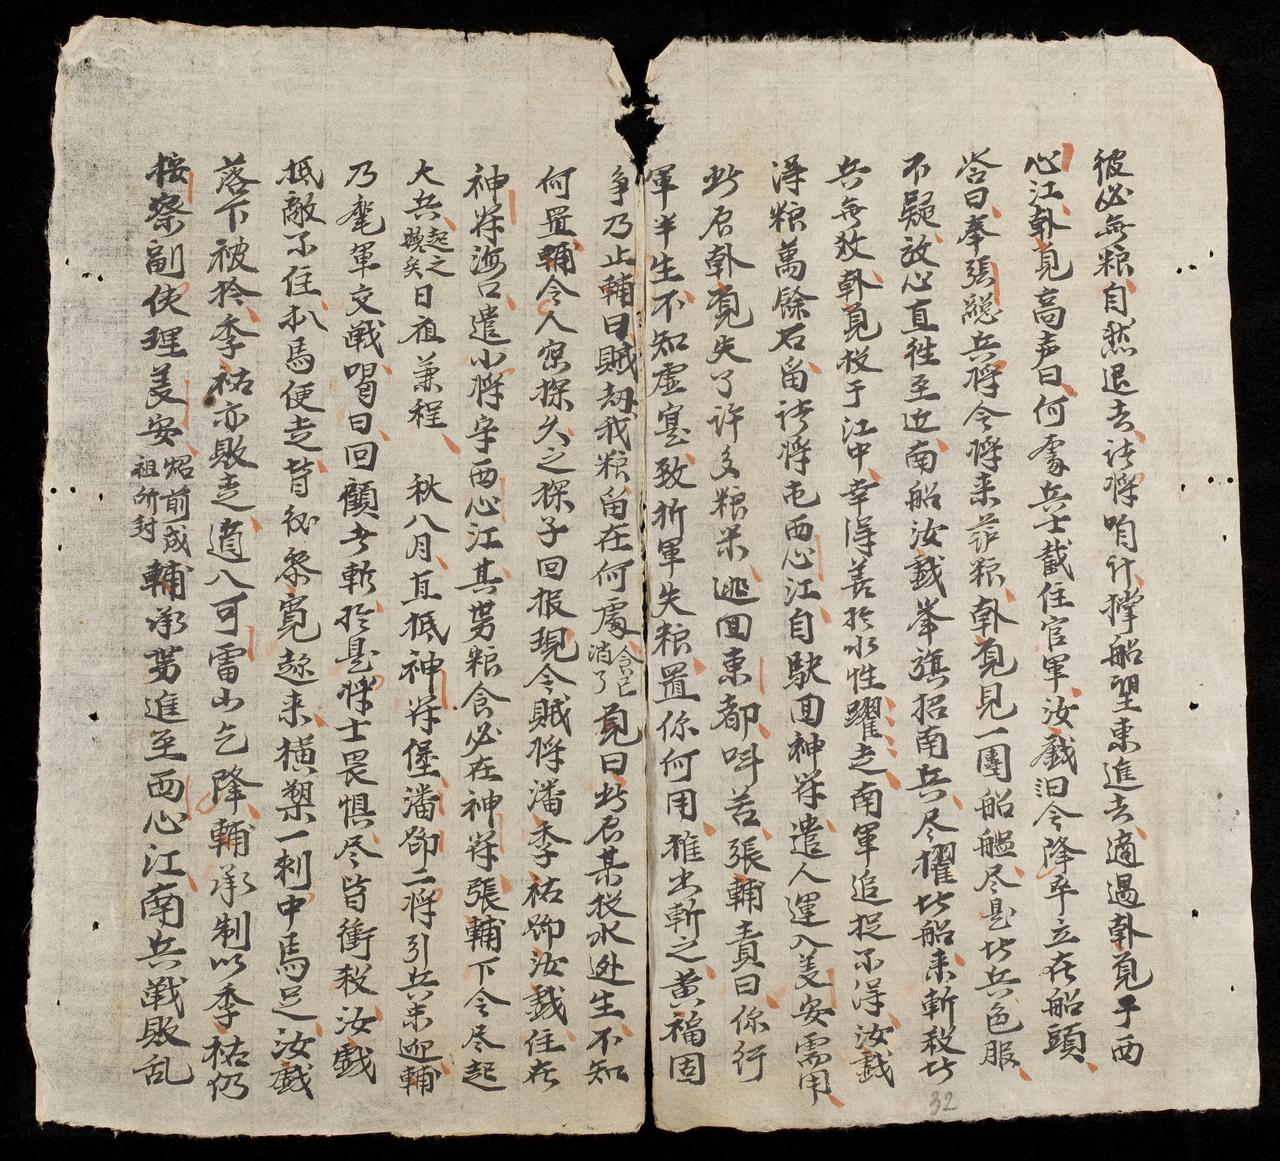 彼必無粮自然退去諸將咱計撐船望東進去適過卦覓于西
心江卦覓高声曰何處兵士截住官軍汝戲汩令降卒立在船頭
答曰奉張總兵將令將来蔀粮卦覓見一團船艦尽是北兵色服
不疑放心直徃至近南船汝戲峯旗招南兵尽擢北船来斬殺北
兵無敉卦覓投于江中幸淂善於水性躍走南軍追捉不淂汝戲
淂粮萬餘石留諸將屯西心江自馱回神符遣人運入美安需用
北后卦覓失了許多粮米逃回東都呌苦張輔責曰你行
軍半生不知虛寔致折軍失粮置你何用推出斬之黄福固
争乃止輔曰賊刼我粮留在何處
貪已
消了
覓曰北后某投水逃生不知
何置輔令人密探久之探子回报現今賊將潘季祐鄧汝戲住在
神符海口遣小將守西心江其男粮食必在神符張輔下令尽起
大兵
起之
賤矣
日夜兼程 秋八月直抵神符堡潘鄧二將引兵来迎輔
乃麾軍交戰喝曰回顧者斬於是將士畏惧尽皆衝殺汝戲
抵敵不住扒馬便走背後黎寬赶来横槊一刺中馬足汝戲
落下被擒季祐亦敗走適入可雷山乞降輔承制以季祐仍
按察副使理美安
炤前或
祖所封
輔承男進至西心江南兵戰敗乱
32